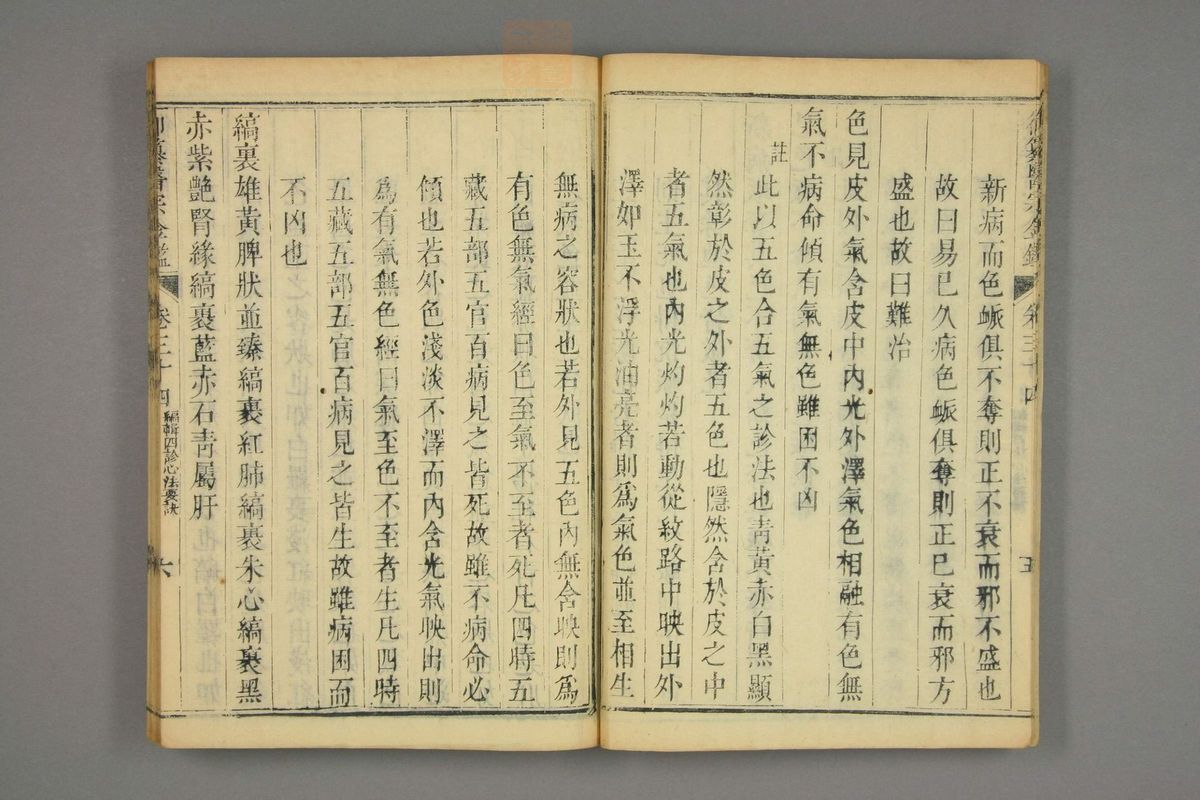 御纂醫宗金鑑 卷三十四 五
新病而色脈俱不奪則正不衰而邪不盛也
故曰易已久病色脈俱奪則正已衰而邪方
盛也故曰難治
色見皮外氣含皮中內光外澤氣色相融有色無
氣不病命傾有氣無色雖困不凶
註此以五色合五氣之診法也青黃赤白黑顯
然彰於皮之外者五色也隱然含於皮之中
者五氣也內光灼灼若動從紋路中映出外
澤如玉不浮光油亮者則爲氣色並至相生
無病之容狀也若外見五色內無含映則爲
有色無氣經曰色至氣不至者死凡四時五
藏五部五官百病見之皆死故雖不病命必
傾也若外色淺淡不澤而內含光氣映出則
爲有氣無色經曰氣至色不至者生凡四時
五藏五部五官百病見之皆生故雖病困而
不凶也
縞裹雄黃脾狀並臻縞裹紅肺縞裹朱心縞裹黑
赤紫艷腎緣縞裹藍赤石青屬肝
御纂醫宗金鑑 卷三十四 編輯四診心法要訣 六